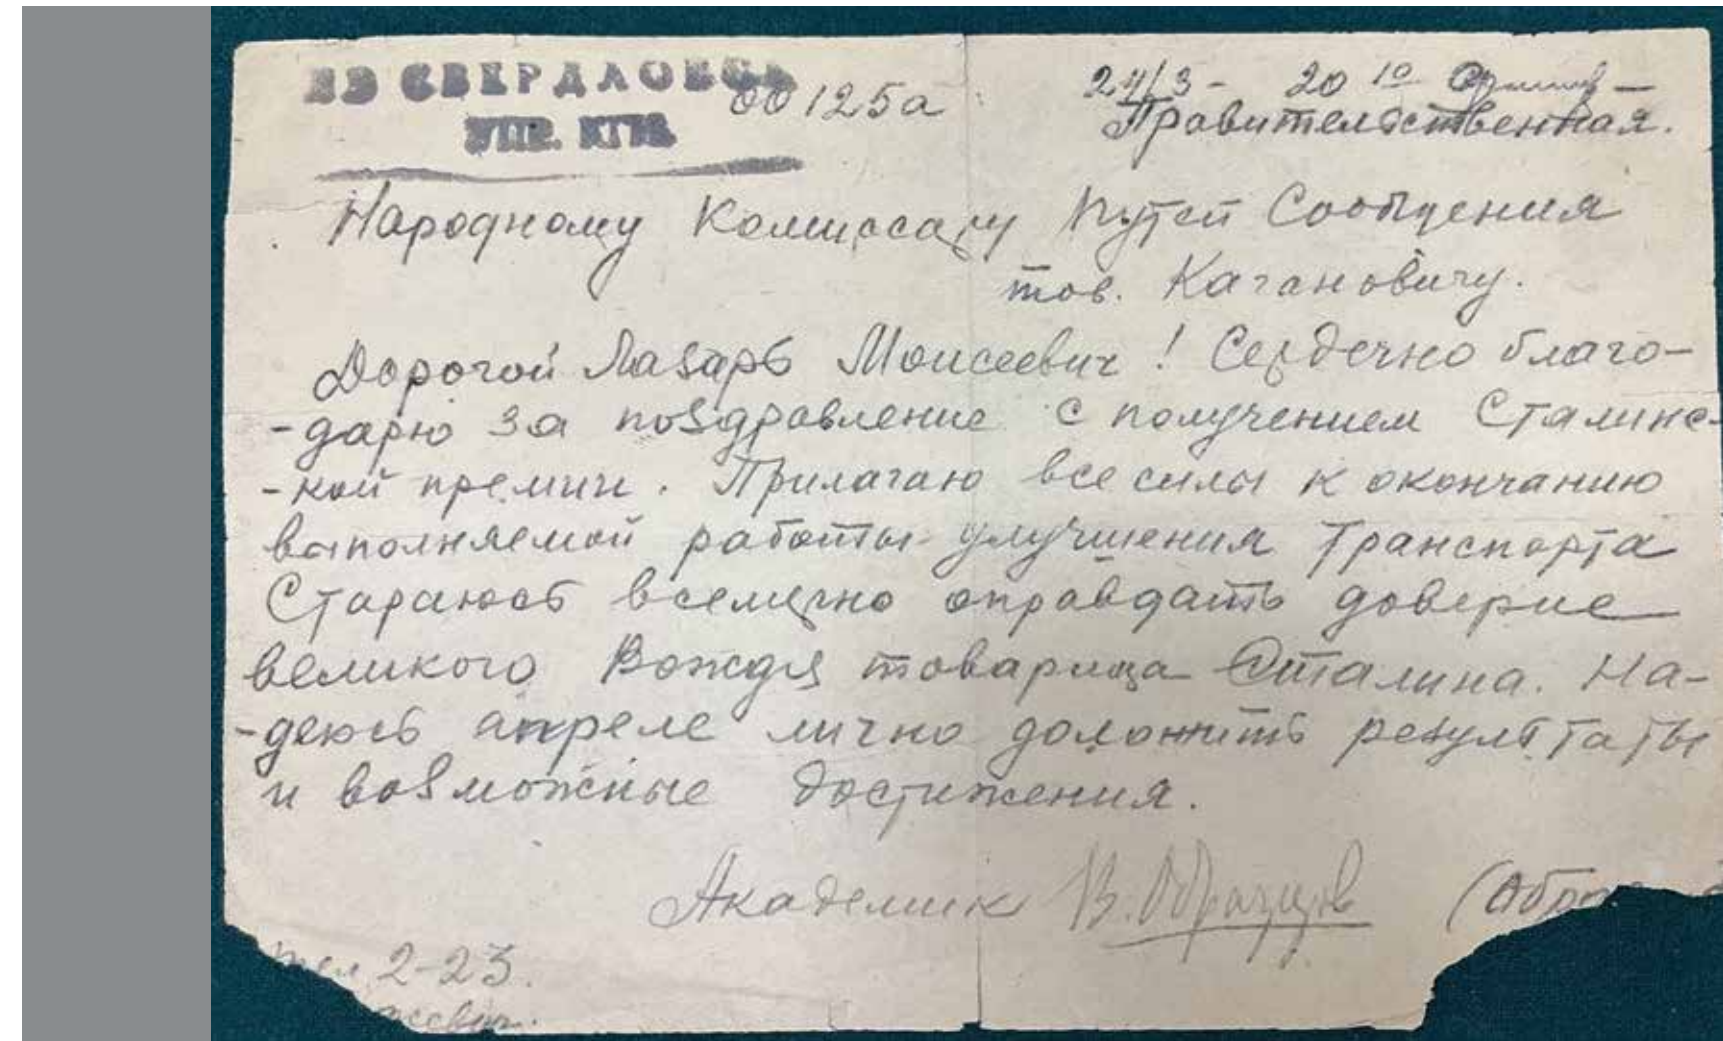 ИЗ СВЕРДЛОВСК
УПР. КГМ
00125а
24/3 - 20 10
Правительственная.
Народному Комиссару Путей Сообщения
тов. Кагановичу.
Дорогой Лазарь Моисеевич! Сердечно благо-
-дарю за поздравление с получением Сталинс-
-кой премии. Прилагаю все силы к окончанию
выполняемой работы улучшения Транспорта
Стараюсь всемерно оправдать доверие
великого Вождя товарища Сталина. На-
-деюсь апреле лично доложить результаты
и возможные достижения.
Академик В. Образцов (Обра
тел 2-23.